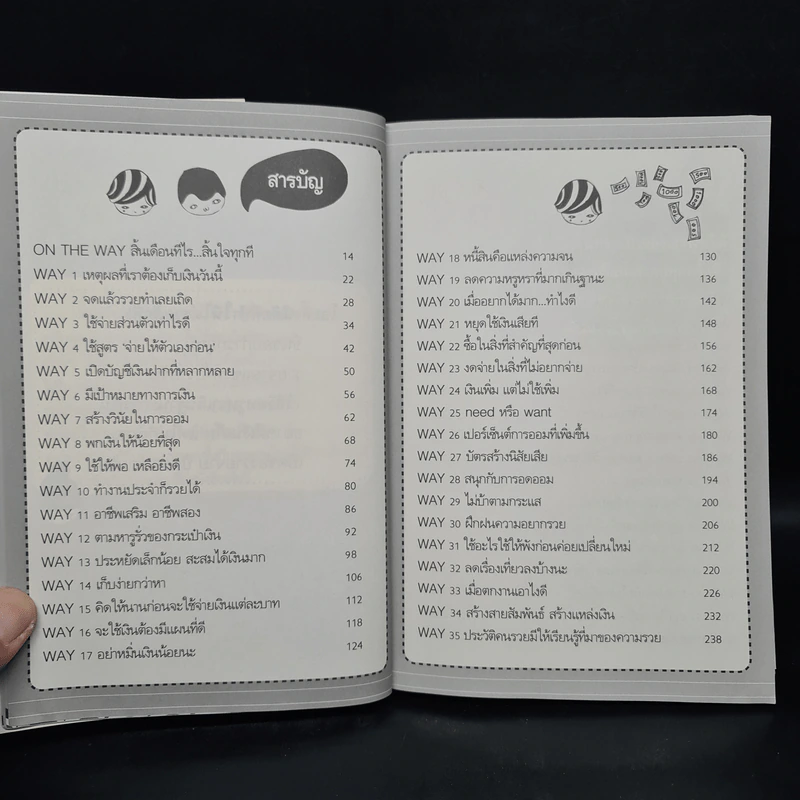 สารบัญ
ON THE WAY สิ้นเดือนทีไร...สิ้นใจทุกที 14
WAY 1 เหตุผลที่เราต้องเก็บเงินวันนี้ 22
WAY 2 จดแล้วรวยทำเลยเถิด 28
WAY 3 ใช้จ่ายส่วนตัวเท่าไรดี 34
WAY 4 ใช้สูตร 'จ่ายให้ตัวเองก่อน' 42
WAY 5 เปิดบัญชีเงินฝากที่หลากหลาย 50
WAY 6 มีเป้าหมายทางการเงิน 56
WAY 7 สร้างวินัยในการออม 62
WAY 8 พกเงินให้น้อยที่สุด 68
WAY 9 ใช้ให้พอ เหลือยิ่งดี 74
WAY 10 ทำงานประจำก็รวยได้ 80
WAY 11 อาชีพเสริม อาชีพสอง 86
WAY 12 ตามหารูรั่วของกระเป๋าเงิน 92
WAY 13 ประหยัดเล็กน้อย สะสมได้เงินมาก 98
WAY 14 เก็บง่ายกว่าหา 106
WAY 15 คิดให้นานก่อนจะใช้จ่ายเงินแต่ละบาท 112
WAY 16 จะใช้เงินต้องมีแผนที่ดี 118
WAY 17 อย่าหมิ่นเงินน้อยนะ 124
500
1000
500
WAY 18 หนี้สินคือแหล่งความจน 130
WAY 19 ลดความหรูหราที่มากเกินฐานะ 136
WAY 20 เมื่ออยากได้มาก...ทำไงดี 142
WAY 21 หยุดใช้เงินเสียที 148
WAY 22 ซื้อในสิ่งที่สำคัญที่สุดก่อน 156
WAY 23 งดจ่ายในสิ่งที่ไม่อยากจ่าย 162
WAY 24 เงินเพิ่ม แต่ไม่ใช้เพิ่ม 168
WAY 25 need หรือ want 174
WAY 26 เปอร์เซ็นต์การออมที่เพิ่มขึ้น 180
WAY 27 บัตรสร้างนิสัยเสีย 186
WAY 28 สนุกกับการอดออม 194
WAY 29 ไม่บ้าตามกระแส 200
WAY 30 ฝึกฝนความอยากรวย 206
WAY 31 ใช้อะไรใช้ให้พังก่อนค่อยเปลี่ยนใหม่ 212
WAY 32 ลดเรื่องเที่ยวลงบ้างนะ 220
WAY 33 เมื่อตกงานเอาไงดี 226
WAY 34 สร้างสายสัมพันธ์ สร้างแหล่งเงิน 232
WAY 35 ประวัติคนรวยมีให้เรียนรู้ที่มาของความรวย 238